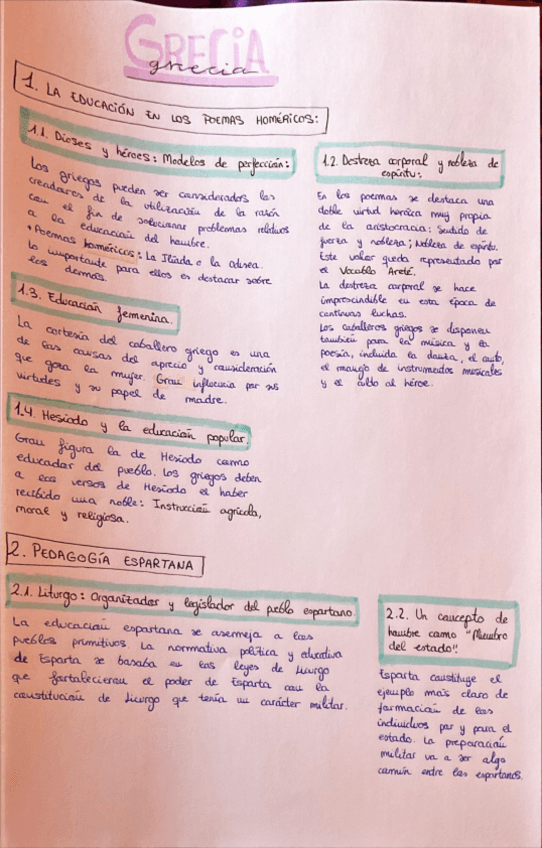 GRECIA
grecia
1. LA EDUCACIÓN EN LOS POEMAS HOMÉRICOS:
1.1. Dioses y héroes: Modelos de perfección:
Los griegos pueden ser considerados los
creadores de la utilización de la razón
con el fin de solucionar problemas relativos
a la educación del hombre.
* Poemas homéricos: La Iliada o la odisea.
Lo importante para ellos es destacar sobre
los demás.
1.2. Destreza corporal y nobleza de
espíritu:
En los poemas se destaca una
doble virtud heroica muy propia
de la aristocracia: Sentido de
fuerza y nobleza; Nobleza de espíritu.
Este valor queda representado por
el Vocablo "Areté".
La destreza corporal se hace
imprescindible en esta época de
continuas luchas.
Los caballeros griegos se disponen
también para la música y la
poesía, incluida la danza, el canto,
el manejo de instrumentos musicales
y el culto al héroe.
1.3. Educación femenina.
La cortesía del caballero griego es una
de las causas del aprecio y consideración
que goza la mujer. Gran influencia por sus
virtudes y su papel de madre.
1.4. Hesiodo y la educación popular.
Gran figura la de Hesiodo como
educador del pueblo. Los griegos deben
a los versos de Hesiodo el haber
recibido una noble: Instrucción agrícola,
moral y religiosa.
2. PEDAGOGÍA ESPARTANA
2.1. Liturgo: Organizador y legislador del pueblo espartano.
La educación espartana se asemeja a los
pueblos primitivos. La normativa política y educativa
de Esparta se basaba en las leyes de Licurgo
que fortalecieron el poder de Esparta con la
constitución de Licurgo que tenía un carácter militar.
2.2. Un concepto de
hombre como "Miembro
del estado".
Esparta constituye el
ejemplo más claro de
formación de los
individuos por y para el
estado. La preparación
militar va a ser algo
común entre los espartanos.